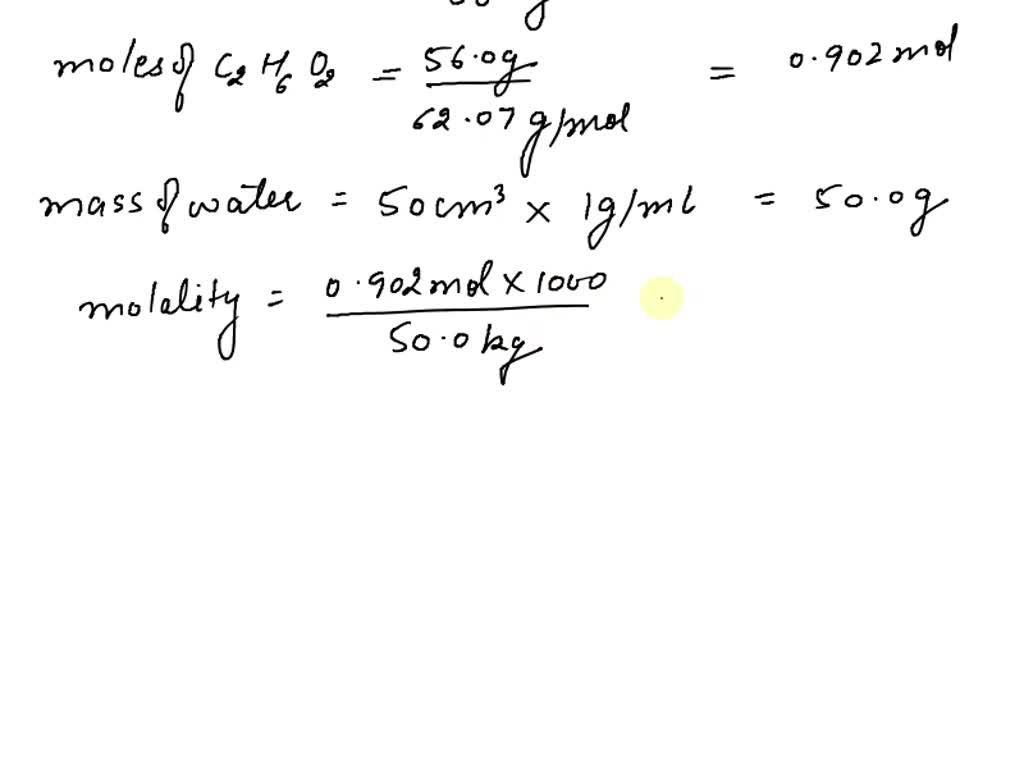 g
moles of C₂H₆O₂ = 56.0g / 62.07 g/mol = 0.902 mol
mass of water = 50cm³ × 1g/ml = 50.0g
molality = 0.902 mol × 1000 / 50.0 kg